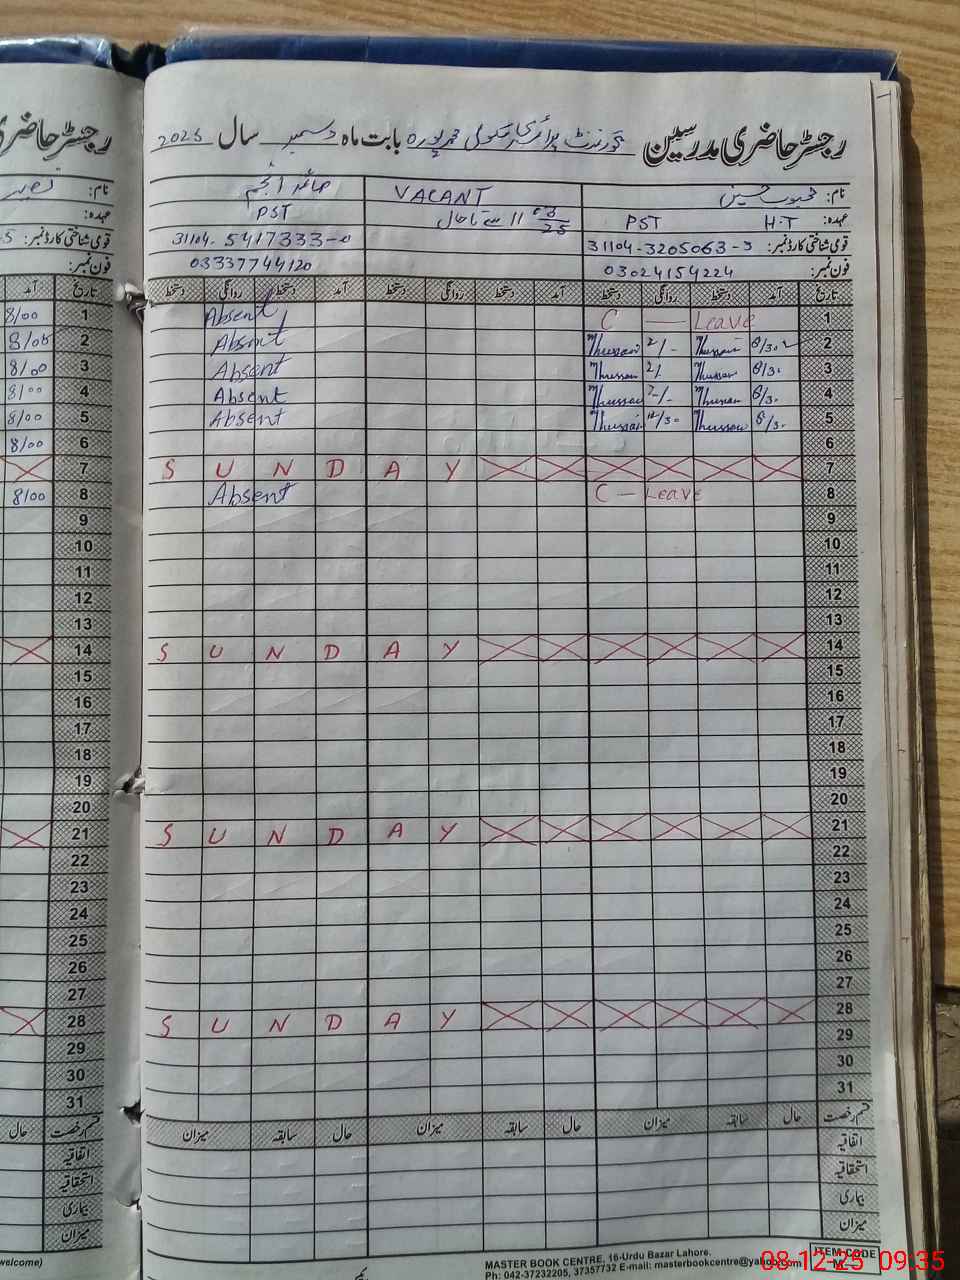 رجسٹر حاضری مدرسین گورنمنٹ پرائمری سکول محمد پورہ بابت ماہ دسمبر سال 2025
نام: محبوب حسین VACANT صائمہ انجم
عہدہ: H.T PST 11 سے تا حال PST
قومی شناختی کارڈ نمبر: 31104-3205063-3 31104-5417333-0
فون نمبر: 03024154224 03337744120
تاریخ آمد دستخط روانگی دستخط آمد دستخط روانگی دستخط آمد دستخط روانگی دستخط
تاریخ آمد
1 C — Leave Absent 1 8/00
2 8/30 Mhussain 2/- Mhussain Absent 2 8/05
3 8/30 Mhussain 2/ Mhussain Absent 3 8/00
4 8/30 Mhussain 2/- Mhussain Absent 4 8/00
5 8/30 Mhussain 12/30 Mhussain Absent 5 8/00
6 6 8/00
7 S U N D A Y 7
8 C — Leave Absent 8 8/00
9 9
10 10
11 11
12 12
13 13
14 S U N D A Y 14
15 15
16 16
17 17
18 18
19 19
20 20
21 S U N D A Y 21
22 22
23 23
24 24
25 25
26 26
27 27
28 S U N D A Y 28
29 29
30 30
31 31
قسم رخصت حال سابقہ میزان حال سابقہ میزان حال سابقہ میزان قسم رخصت حال
اتفاقیہ اتفاقیہ
استحقاقیہ استحقاقیہ
بیماری بیماری
میزان میزان
welcome)
MASTER BOOK CENTRE, 16-Urdu Bazar Lahore.
Ph: 042-37232205, 37357732 E-mail: masterbookcentre@yahoo.com
ITEM CODE
M
08-12-25 09:35